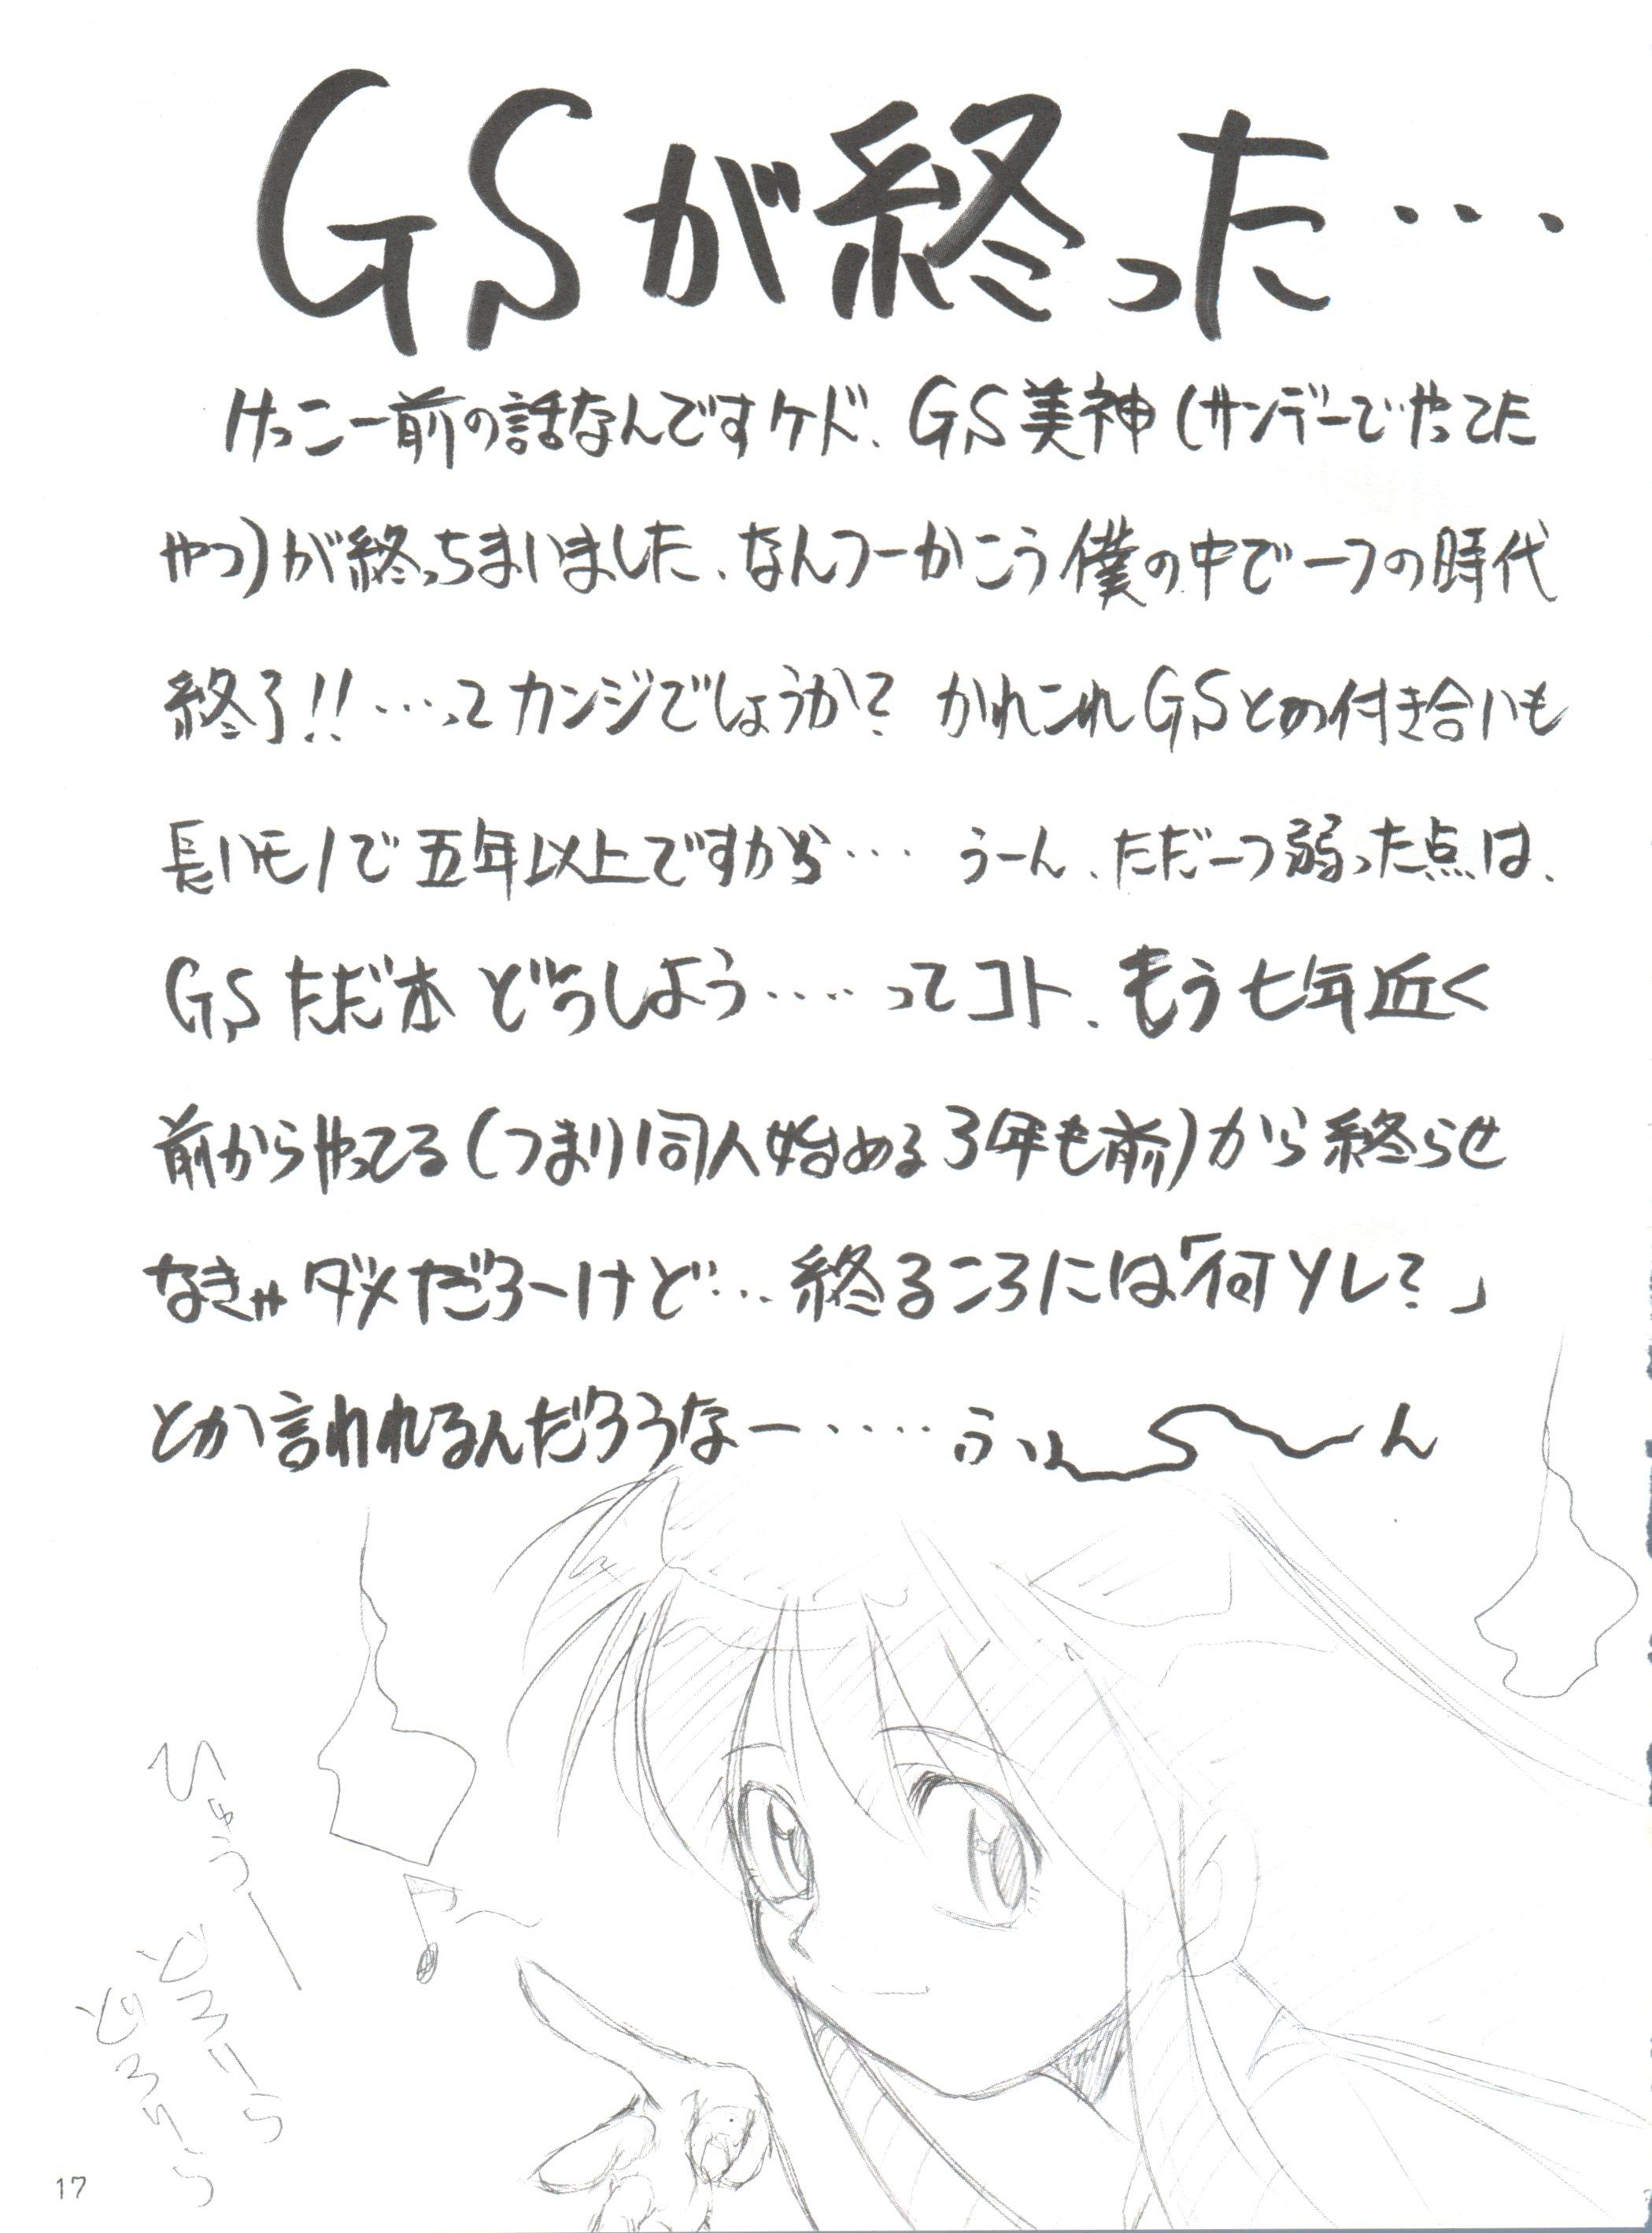 GSが終った…
けっこー前の話なんですケド、GS美神(サンデーでやってた
やつ)が終っちまいました、なんつーかこう僕の中で一つの時代
終了!!…ってカンジでしょうか? かれこれGSとの付き合いも
長いモノで五年以上ですから… うーん、ただ一つ弱った点は、
GSただ本どうしよう……ってコト、もう七年近く
前からやってる(つまり同人始める3年も前)から終らせ
なきゃダメだろーけど…終るころには「何ソレ?」
とか言われるんだろうなー…… うぃ〜ん
ひゅうー
どろりら
どろりら
17